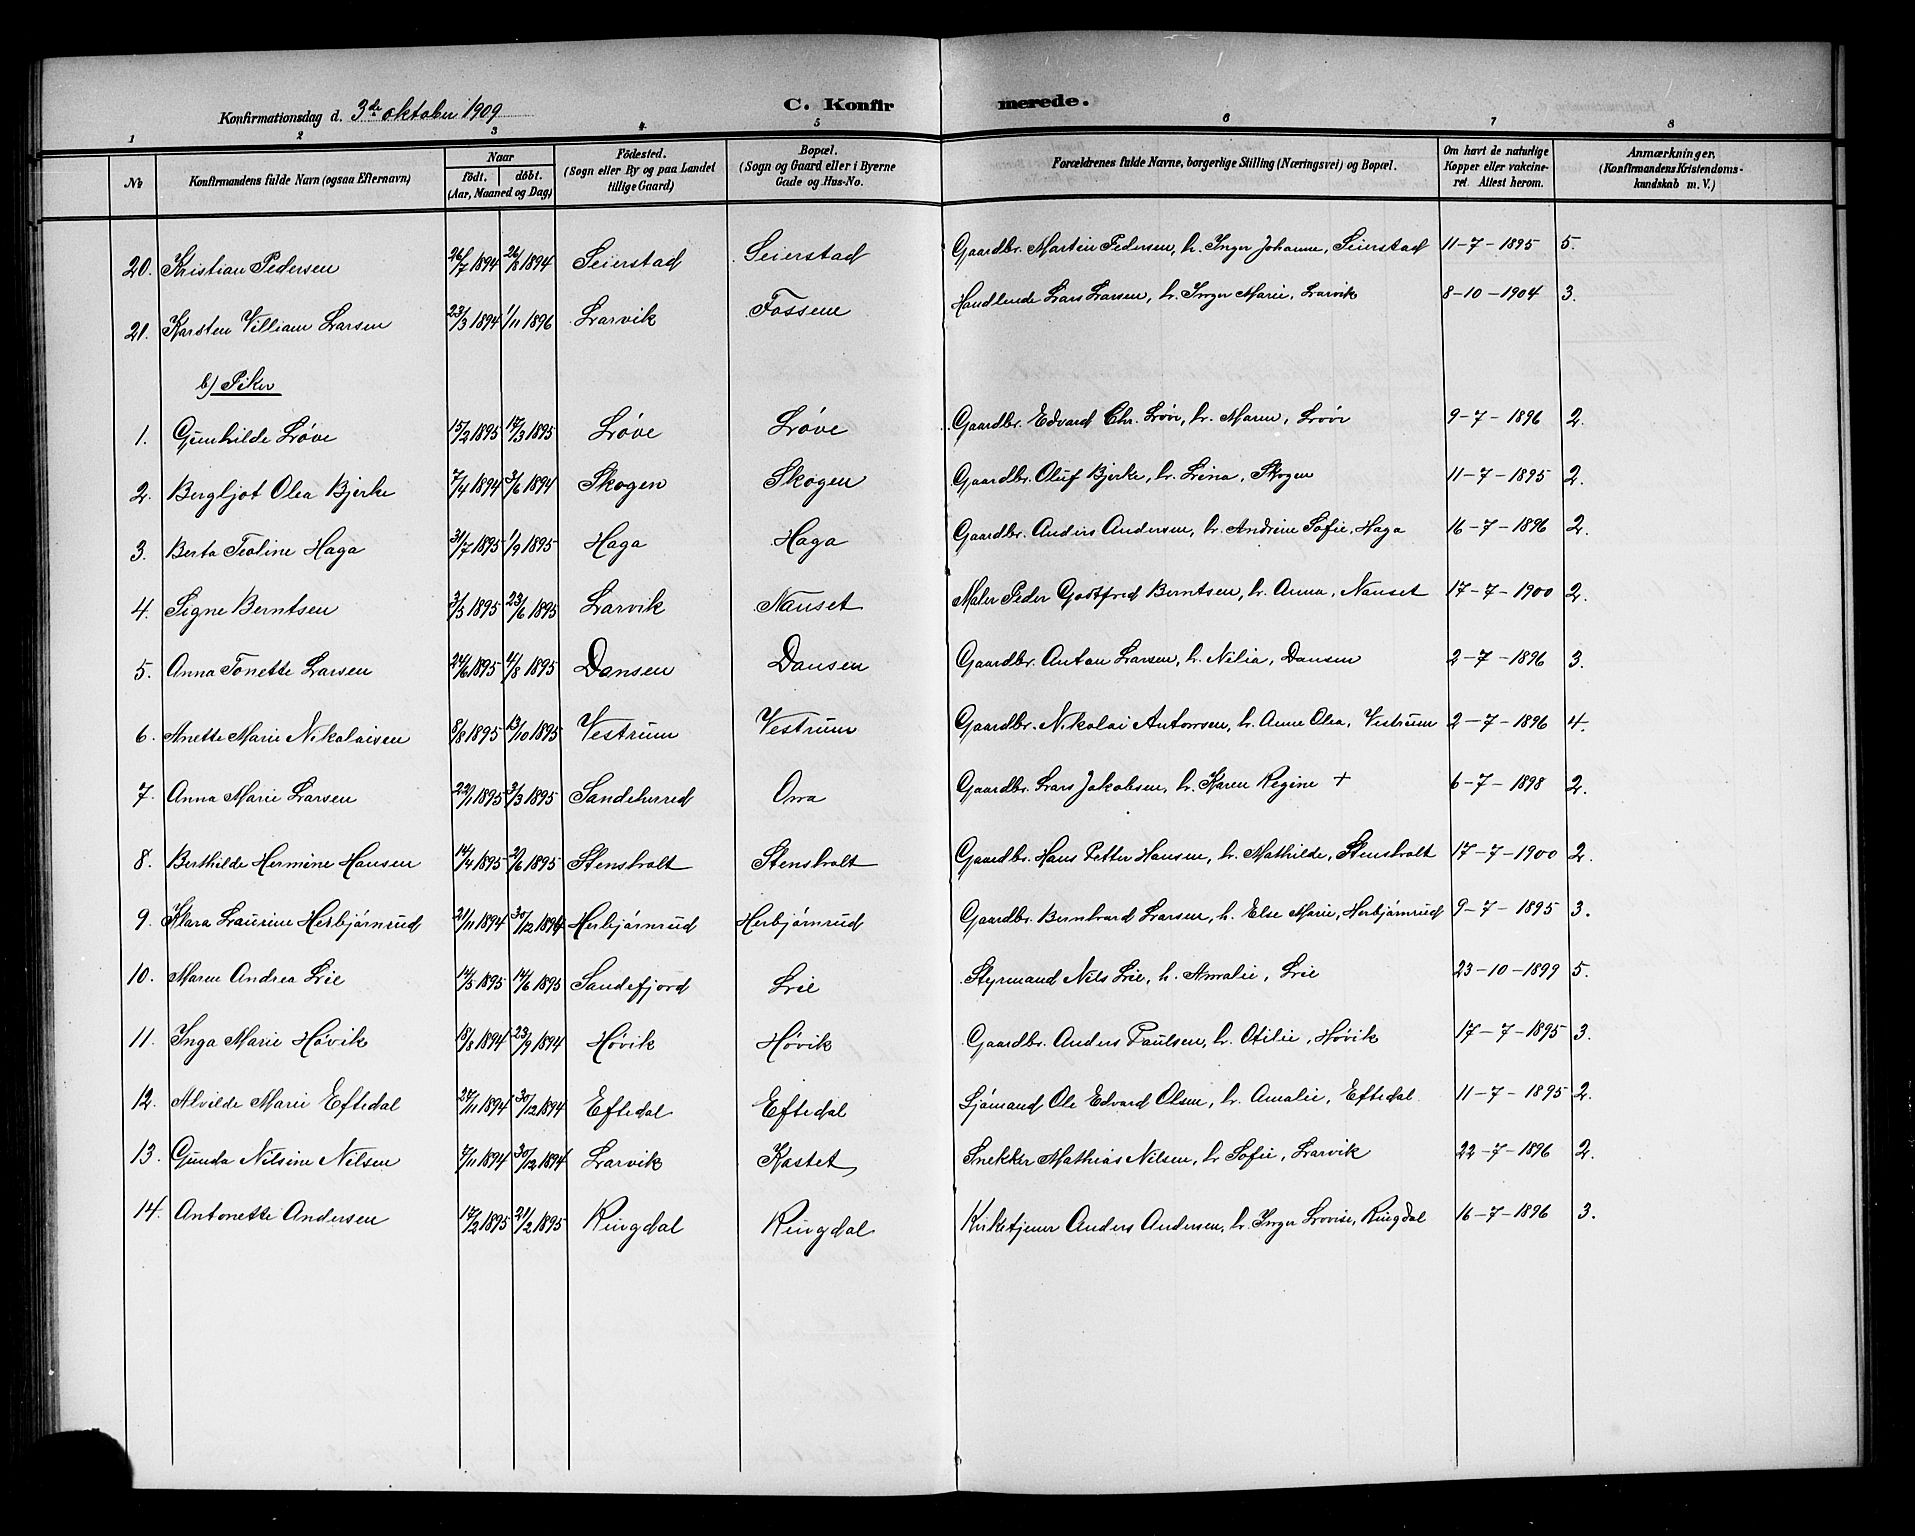 Konfirmationsdag d. 3de oktober 1909
C. Konfirmerede.
1 2 3 4 5 6 7 8
No Konfirmandens fulde Navn (ogsaa Efternavn) Naar født. døbt. (Aar, Maaned og Dag) Fødested. (Sogn eller By og paa Landet tillige Gaard) Bopæl. (Sogn og Gaard eller i Byerne Gade og Hus-No. Forældrenes fulde Navne, borgerlige Stilling (Næringsvei) og Bopæl. Om havt de naturlige Kopper eller vakcineret. Attest herom. Anmærkninger. (Konfirmandens Kristendomskundskab m. V.)
20. Kristian Pedersen 26/7 1894 26/8 1894 Seierstad Seierstad Gaardbr. Martin Pedersen, h. Inger Johanne, Seierstad 11-7-1895 5.
21. Karsten Villiam Larsen 23/3 1894 1/11 1896 Larvik Fossene Handlende Lars Larsen, h. Inger Marie, Larvik 8-10-1904 3.
b) Piker
1. Gunhilde Løve 15/2 1895 17/3 1895 Løve Løve Gaardbr. Edvard Chr. Løve, h. Maren, Løve 9-7-1896 2.
2. Bergljot Olea Bjerke 7/4 1894 3/6 1894 Skogen Skogen Gaardbr. Oluf Bjerke, h. Lina, Skogen 11-7-1895 2.
3. Berta Teoline Haga 31/7 1895 1/9 1895 Haga Haga Gaardbr. Anders Andersen, h. Andrine Sofie, Haga 16-7-1896 2.
4. Signe Berntsen 3/5 1895 23/6 1895 Larvik Nanset Maler Peder Godtfred Berntsen, h. Anna, Nanset 17-7-1900 2.
5. Anna Tonette Larsen 24/6 1895 4/8 1895 Dansen Dansen Gaardbr. Anton Larsen, h. Nilia, Dansen 2-7-1896 3.
6. Anette Marie Nikolaisen 8/8 1895 13/10 1895 Vestrum Vestrum Gaardbr. Nikolai Antonsen, h. Anne Olea, Vestrum 2-7-1896 4.
7. Anna Marie Larsen 22/1 1895 3/3 1895 Sandeherred Oma Gaardbr. Lars Jakobsen, h. Karen Regine + 6-7-1898 2.
8. Berthilde Hermine Hansen 14/4 1895 2/6 1895 Stensholt Stensholt Gaardbr. Hans Petter Hansen, h. Mathilde, Stensholt 17-7-1900 2.
9. Klara Laurine Herbjørnrud 21/11 1894 30/12 1894 Herbjørnrud Herbjørnrud Gaardbr. Bernhard Larsen, h. Else Marie, Herbjørnrud 9-7-1895 3.
10. Maren Andrea Lie 14/5 1895 14/6 1895 Sandefjord Lie Styrmand Nils Lie, h. Amalie, Lie 23-10-1899 5.
11. Inga Marie Høvik 18/8 1894 23/9 1894 Høvik Høvik Gaardbr. Anders Paulsen, h. Otilie, Høvik 17-7-1895 3.
12. Alvilde Marie Eftedal 27/11 1894 30/12 1894 Eftedal Eftedal Sjømand Ole Edvard Olsen, h. Amalie, Eftedal. 11-7-1895 2.
13. Gunda Nilsine Nilsen 9/11 1894 30/12 1894 Larvik Kastet Snekker Mathias Nilsen, h. Sofie, Larvik 22-7-1896 2.
14. Antonette Andersen 17/2 1895 21/2 1895 Ringdal Ringdal Kirketjener Anders Andersen, h. Inger Lovise, Ringdal 16-7-1896 3.